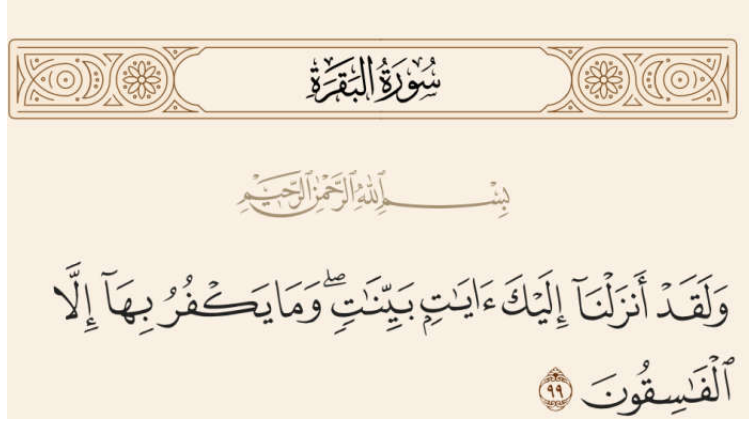 سُورَةُ البَقَرَةِ
بِسْمِ ٱللَّهِ ٱلرَّحْمَٰنِ ٱلرَّحِيمِ
وَلَقَدْ أَنزَلْنَآ إِلَيْكَ ءَايَٰتٍۭ بَيِّنَٰتٍۖ وَمَا يَكْفُرُ بِهَآ إِلَّا
ٱلْفَٰسِقُونَ ٩٩